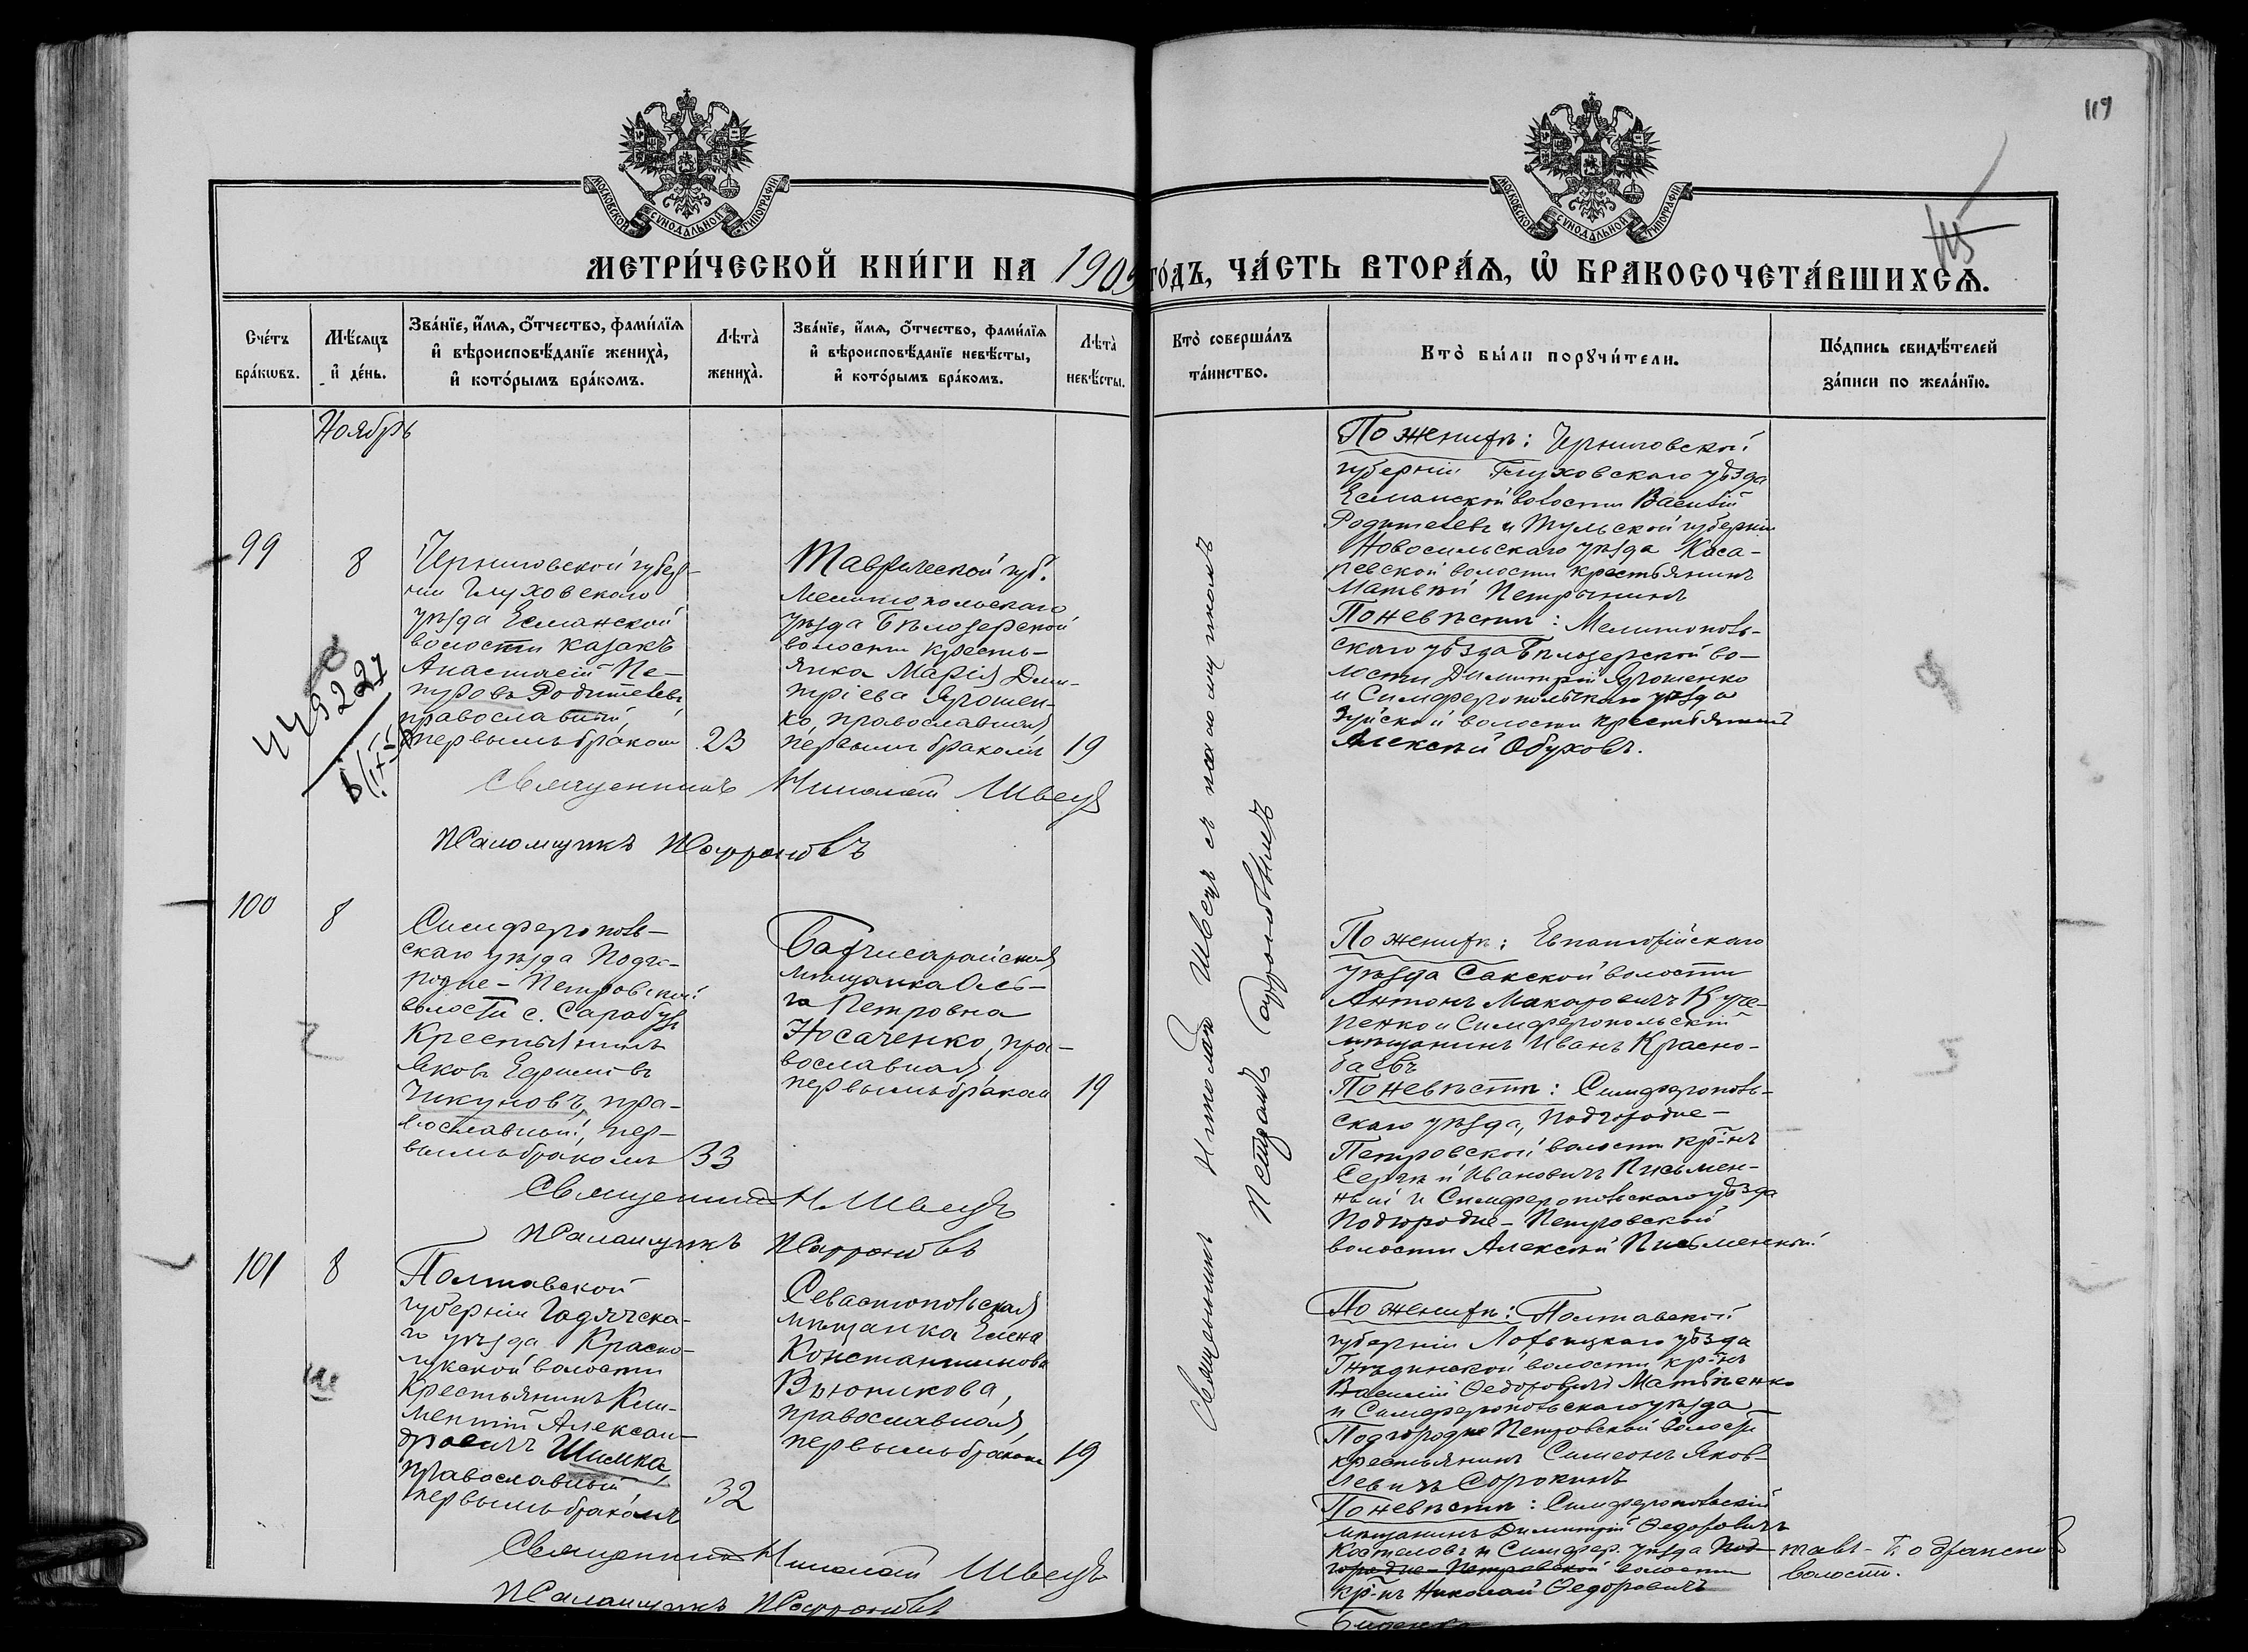 119
115
МОСКОВСКОЙ СУНОДАЛЬНОЙ ТИПОГРАФІИ
МОСКОВСКОЙ СУНОДАЛЬНОЙ ТИПОГРАФІИ
МЕТРИ́ЧЕСКОЙ КНИ́ГИ НА 1909 ГО́ДЪ, ЧА́СТЬ ВТОРА́Ѧ, Ѽ БРАКОСОЧЕТА́ВШИХСѦ.
Сче́тъ
бра́кѡвъ.
Мѣ́сяцъ
и҆ де́нь.
Зва́нїе, и҆́мѧ, ѻ҆́тчество, фами́лїѧ
и҆ вѣроисповѣ́данїе жениха̀,
и҆ кото́рымъ бра́комъ.
Лѣ́та
жениха̀.
Зва́нїе, и҆́мѧ, ѻ҆́тчество, фами́лїѧ
и҆ вѣроисповѣ́данїе невѣ́сты,
и҆ кото́рымъ бра́комъ.
Лѣ́та
невѣ́сты.
Кто̀ соверша́лъ
та́инство.
Кто̀ бы́ли порꙋчи́тели.
По́дпись свидѣ́телей
за́писи по жела́нїю.
Ноябрь
99
8
Черниговской губер-
ніи Глуховскаго
уѣзда Есманской
волости казакъ
Анастасій Пе-
тровъ Родителевъ
православный,
первымъ бракомъ
23
Таврической губ.
Мелитопольскаго
уѣзда Бѣлозерской
волости кресть-
янка Марія Дми-
тріева Ярошен-
ко, православная
первымъ бракомъ
19
Священникъ Николай Швецъ
Псаломщикъ
По женихѣ: Черниговской
губерніи Глуховскаго уѣзда
Есманской волости Василій
Родителевъ и Тульской губерніи
Новосильскаго уѣзда Каса-
волости крестьянинъ
Матвѣй Петрыкинъ
По невѣстѣ: Мелитополь-
скаго уѣзда Бѣлозерской во-
лости Димитрій Ярошенко
и Симферопольскаго уѣзда
Зуйской волости крестьянинъ
Алексѣй Обуховъ.
100
8
Симферополь-
скаго уѣзда Подго-
родне-Петровской
волости с. Сарабузъ
Крестьянинъ
Яковъ Ефимовъ
Чикуновъ, пра-
вославный, пер-
вымъ бракомъ
33
Бахчисарайская
мѣщанка Оль-
га Петровна
Носаченко, пра-
вославная
первымъ бракомъ
19
Священникъ Н. Швецъ
Псаломщикъ
По женихѣ: Евпаторійскаго
уѣзда Сакской волости
Антонъ Макаровичъ
и Симферопольскій
мѣщанинъ Иванъ Красно-
баевъ
По невѣстѣ: Симферополь-
скаго уѣзда, Подгородне-
Петровской волости кр-нъ
Сергѣй Ивановичъ Письмен-
ный и Симферопольскаго уѣзда
Подгородне-Петровской
волости Алексѣй Письменный
101
8
Полтавской
губерніи Гадячска-
го уѣзда Красно-
лукской волости
Крестьянинъ Кли-
ментій Алексан-
дровичъ Шимка,
православный
первымъ бракомъ
32
Севастопольская
мѣщанка Елена
Константинова
Вьюникова,
православная
первымъ бракомъ
19
Священникъ Николай Швецъ
Псаломщикъ
По женихѣ: Полтавской
губерніи Лохвицкаго уѣзда
Гнѣдинской волости кр-нъ
Василій Ѳедоровичъ Матвѣенко
и Симферопольскаго уѣзда
Подгородне Петровской волости
крестьянинъ Симеонъ Яков-
левичъ Сорокинъ
По невѣстѣ: Симферопольскій
мѣщанинъ Димитрій Ѳедоровичъ
Костеловъ и Симфер. уѣзда Под-
городне-Петровской волости
кр-нъ Николай Ѳедоровичъ
волости.
Священникъ Николай Швецъ съ псаломщикомъ
Петромъ